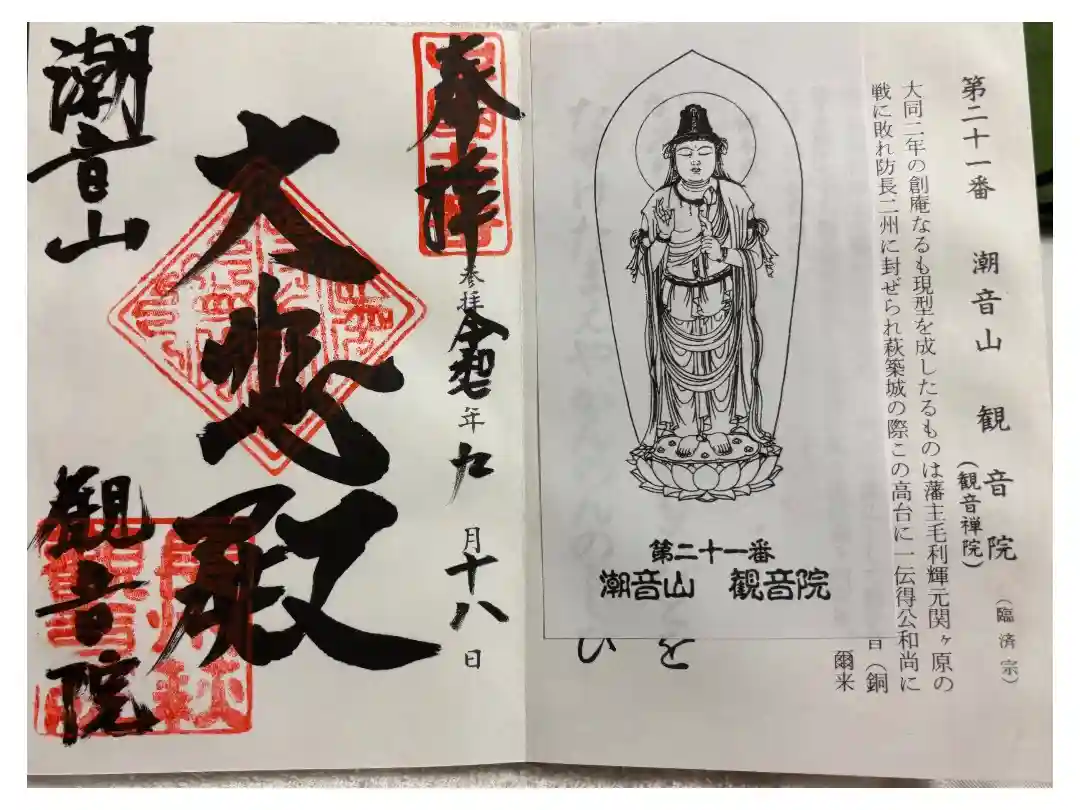 第二十一番 潮音山 観音院 (臨済宗)
(観音禅院)
大同二年の創庵なるも現型を成したるものは藩主毛利輝元関ヶ原の
戦に敗れ防長二州に封ぜられ萩築城の際この高台に一伝得公和尚に
音(銅
爾来
を
い
第二十一番
潮音山 観音院
奉拝
参拝 令和七年九月十八日
大悲殿
潮音山
観音院